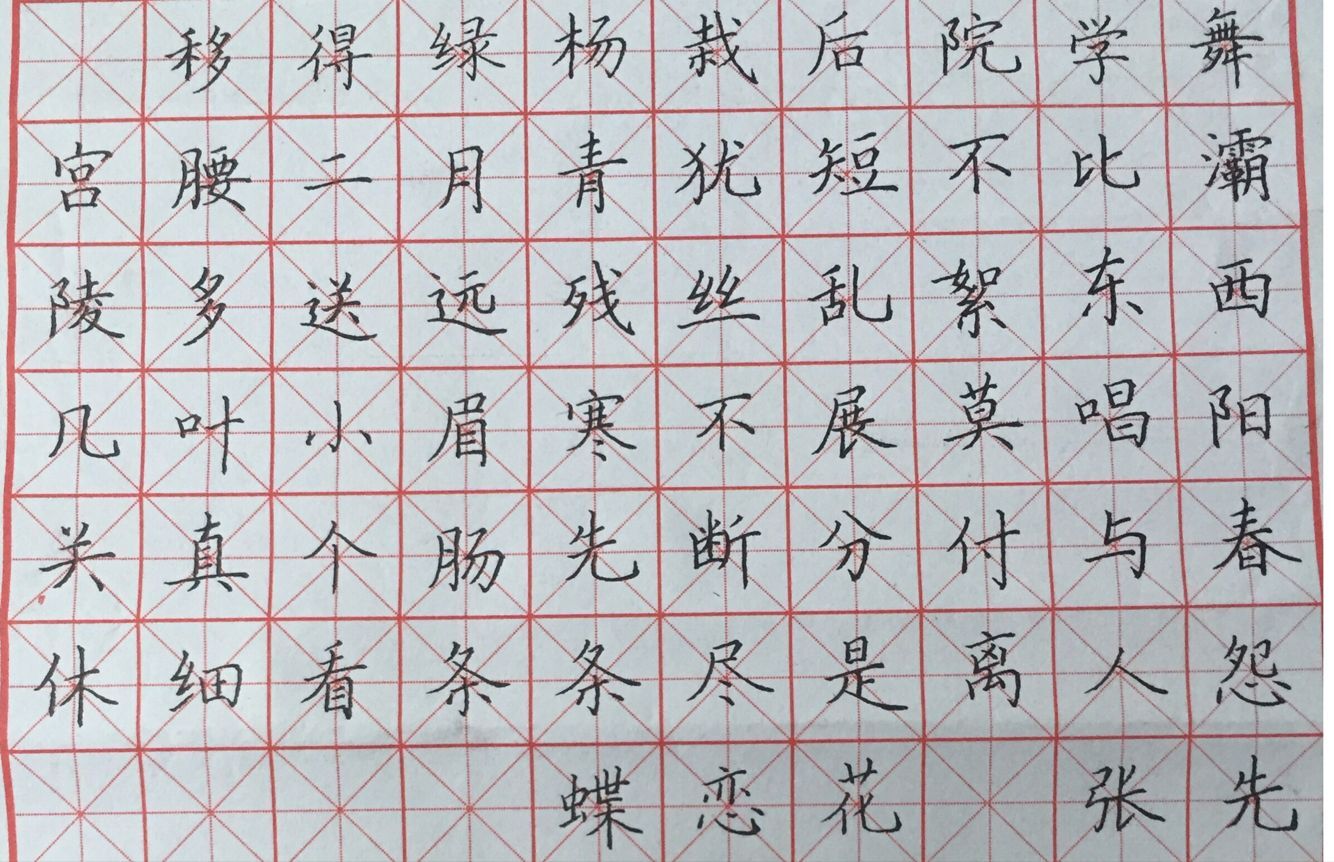 移得绿杨栽后院学舞
宫腰二月青犹短不比灞
陵多送远残丝乱絮东西
几叶小眉寒不展莫唱阳
关真个肠先断分付与春
休细看条条尽是离人怨
蝶恋花 张先